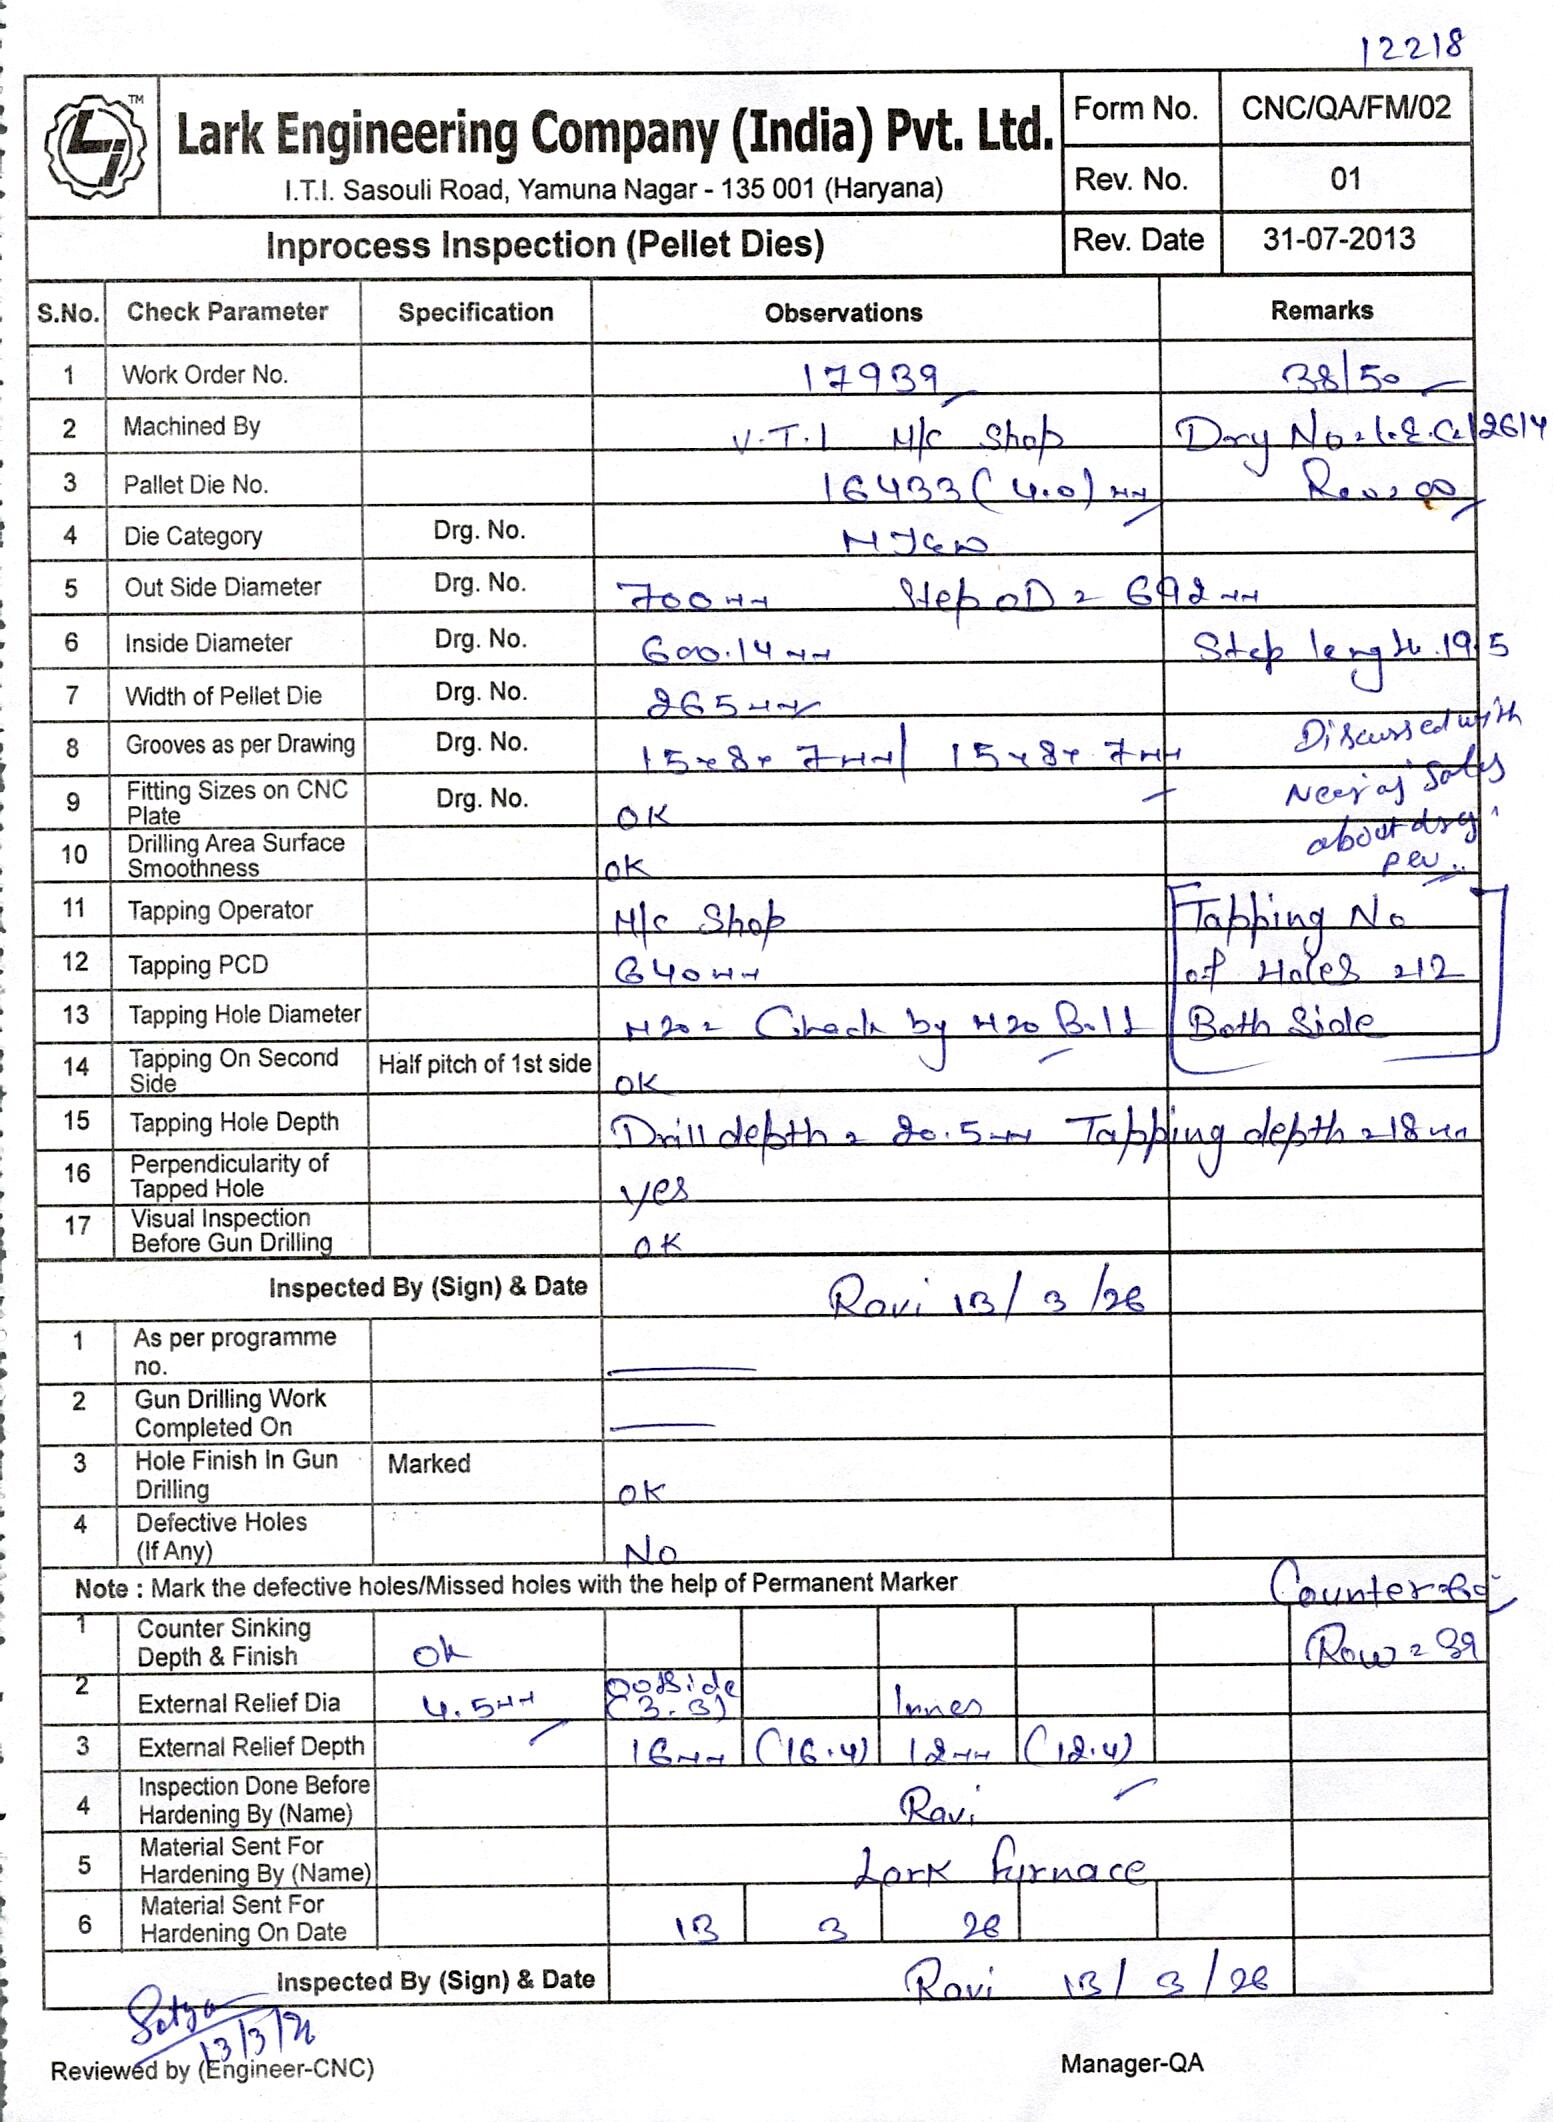 12218
LJ TM
Lark Engineering Company (India) Pvt. Ltd.
I.T.I. Sasouli Road, Yamuna Nagar - 135 001 (Haryana)
Form No. CNC/QA/FM/02
Rev. No. 01
Inprocess Inspection (Pellet Dies) Rev. Date 31-07-2013
S.No. Check Parameter Specification Observations Remarks
1 Work Order No. 17939 38/50
2 Machined By V.T.I M/c Shop
3 Pallet Die No. 16433 (4.0) mm
4 Die Category Drg. No.
5 Out Side Diameter Drg. No. 700mm Step OD = 692mm
6 Inside Diameter Drg. No. 600.14mm Step length. 19.5
7 Width of Pellet Die Drg. No. 265mm
8 Grooves as per Drawing Drg. No. 15x8x7mm/ 15x8x7mm Discussed with
9 Fitting Sizes on CNC Plate Drg. No. OK Neeraj Sales
10 Drilling Area Surface Smoothness OK about drg
11 Tapping Operator M/c Shop Tapping No
12 Tapping PCD 640mm of Holes =12
13 Tapping Hole Diameter M20= Check by M20 Bolt Both Side
14 Tapping On Second Side Half pitch of 1st side OK
15 Tapping Hole Depth Drill depth = 20.5mm Tapping depth =18mm
16 Perpendicularity of Tapped Hole yes
17 Visual Inspection Before Gun Drilling OK
Inspected By (Sign) & Date Ravi 13/3/26
1 As per programme no.
2 Gun Drilling Work Completed On
3 Hole Finish In Gun Drilling Marked OK
4 Defective Holes (If Any) No
Note : Mark the defective holes/Missed holes with the help of Permanent Marker
1 Counter Sinking Depth & Finish Ok Row = 39
2 External Relief Dia 4.5mm (3.3) Inner
3 External Relief Depth 16mm (16.4) 12mm (12.4)
4 Inspection Done Before Hardening By (Name) Ravi
5 Material Sent For Hardening By (Name) Lark furnace
6 Material Sent For Hardening On Date 13 3 26
Inspected By (Sign) & Date Ravi 13/3/26
13/3/26
Reviewed by (Engineer-CNC) Manager-QA